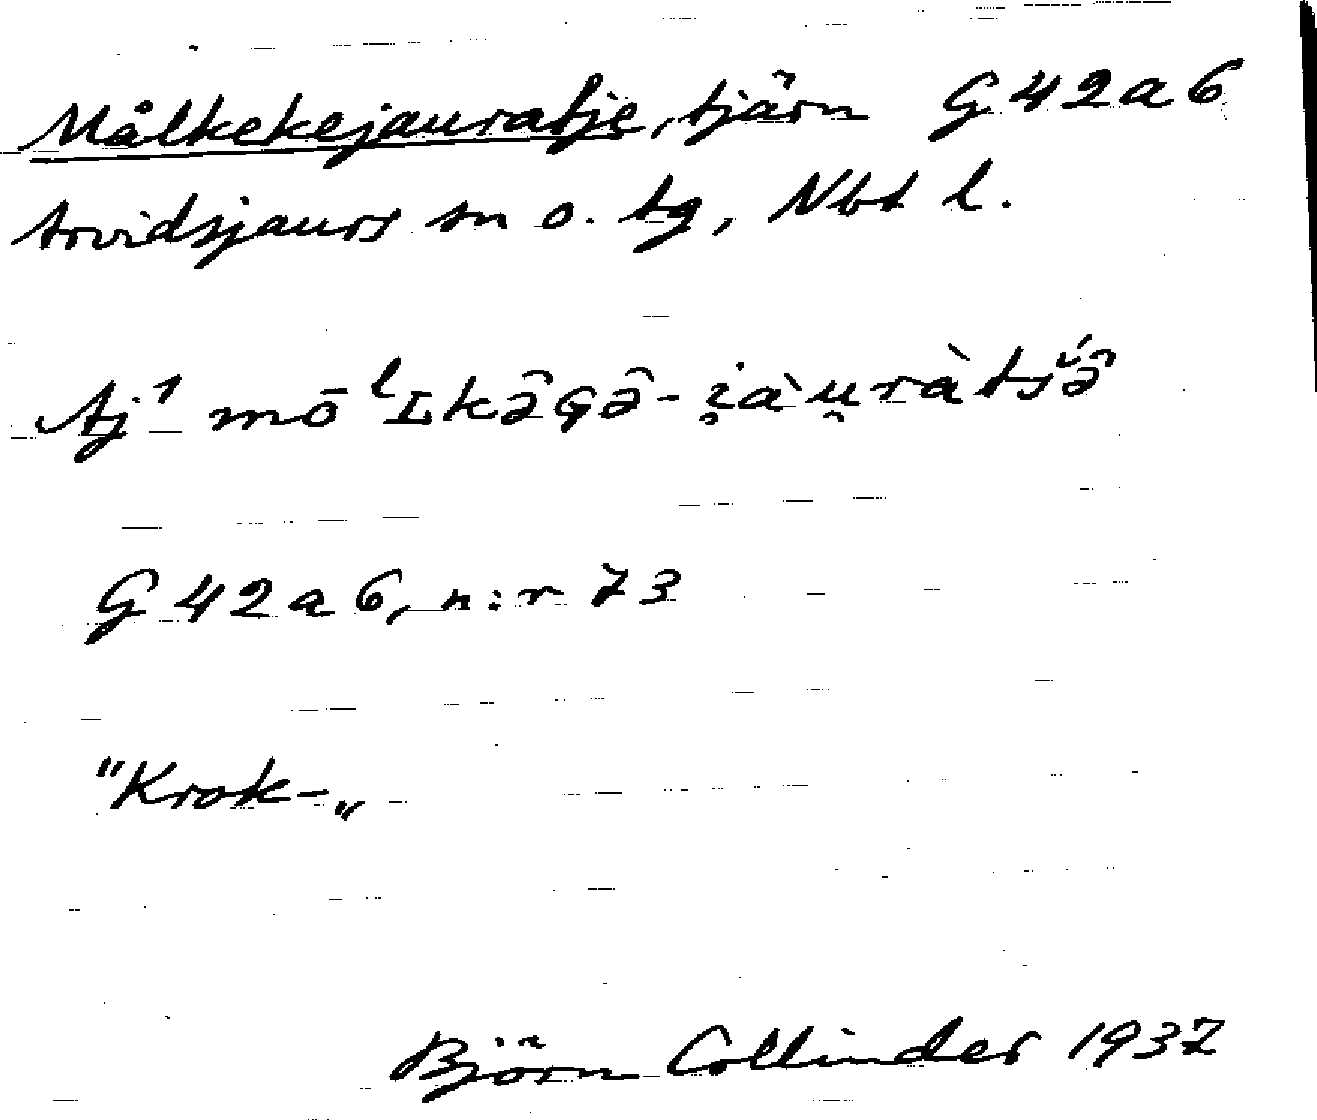 Målkekejauratje, tjärn G 42 a 6
Arvidsjaurs sn o. tg, Nbt l.
Aj¹ mō ˡʟkə̑ɢə̑-i̯àu̯ràtsə̑́
G 42 a 6, n:r 73
"Krok-„
Björn Collinder 1937